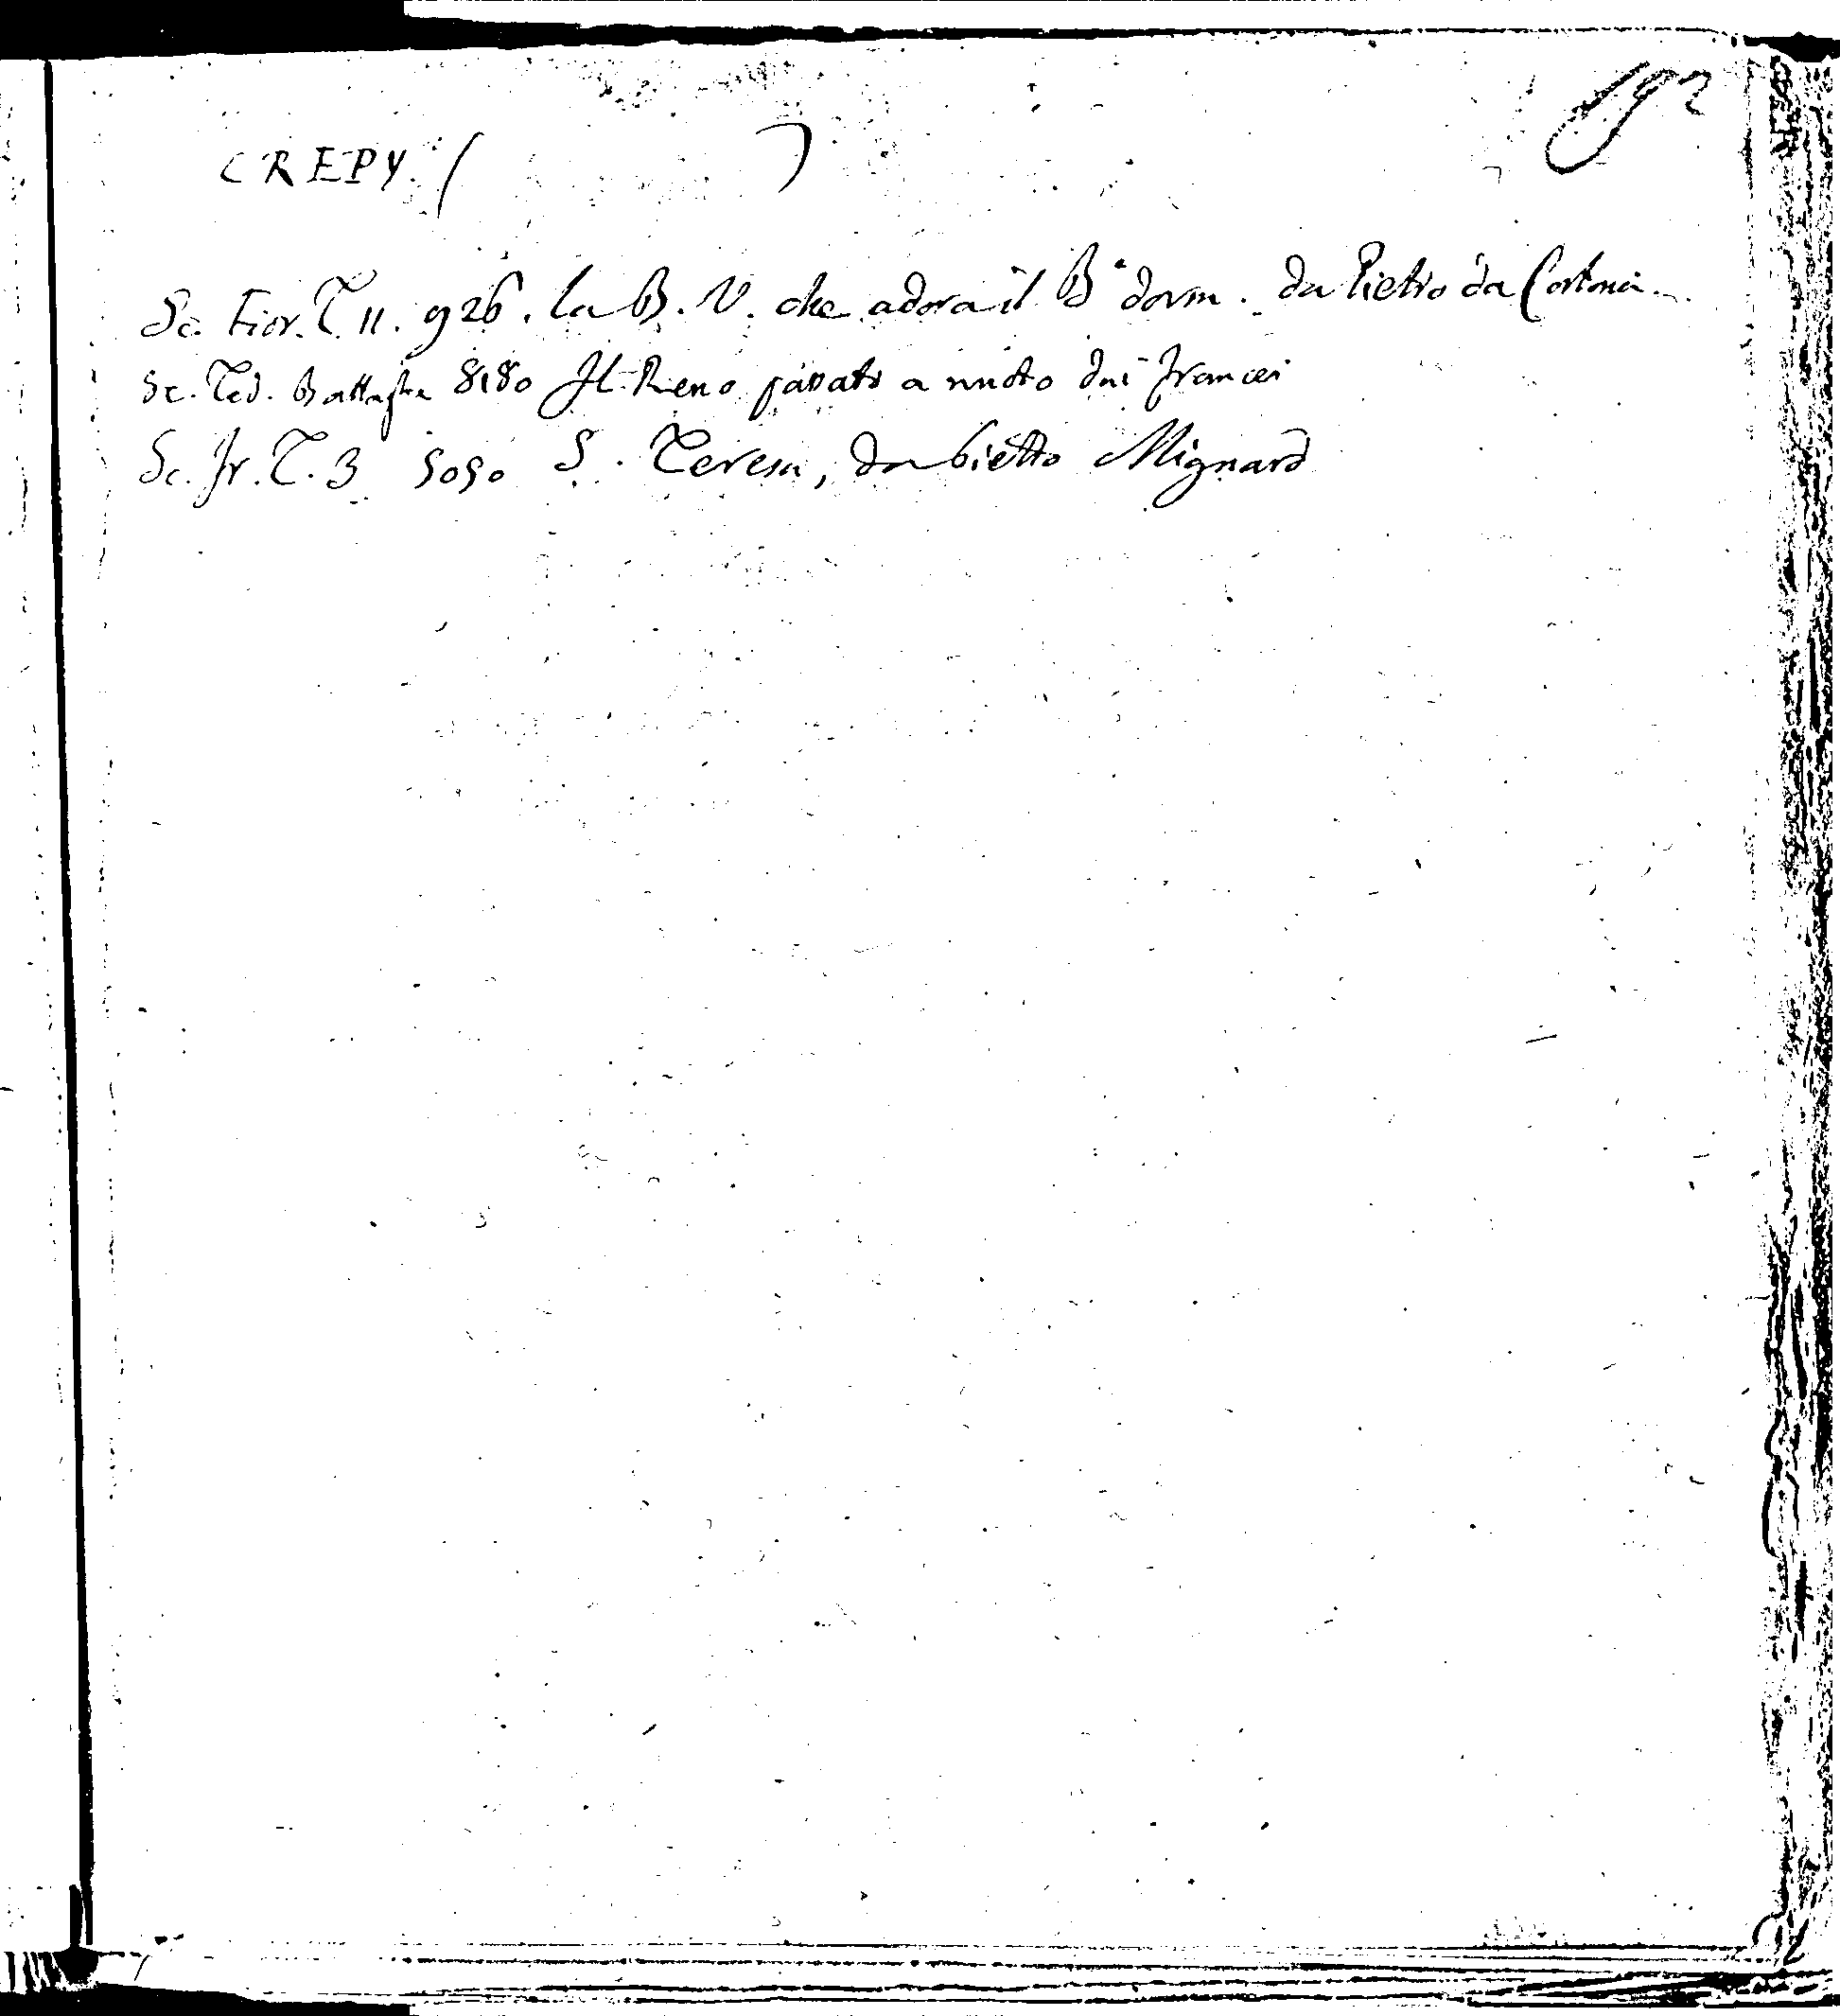 192
CREPY. ( )
Sc. Fior. T. 11. 926. la B. V. che adora il Bo dorm. da Pietro da Cortona.
Sc. Ted. Battaglie 8180 Il Reno passato a nuoto dai francesi
Sc. fr. T. 3 5050 S. Teresa, da Pietro Mignard